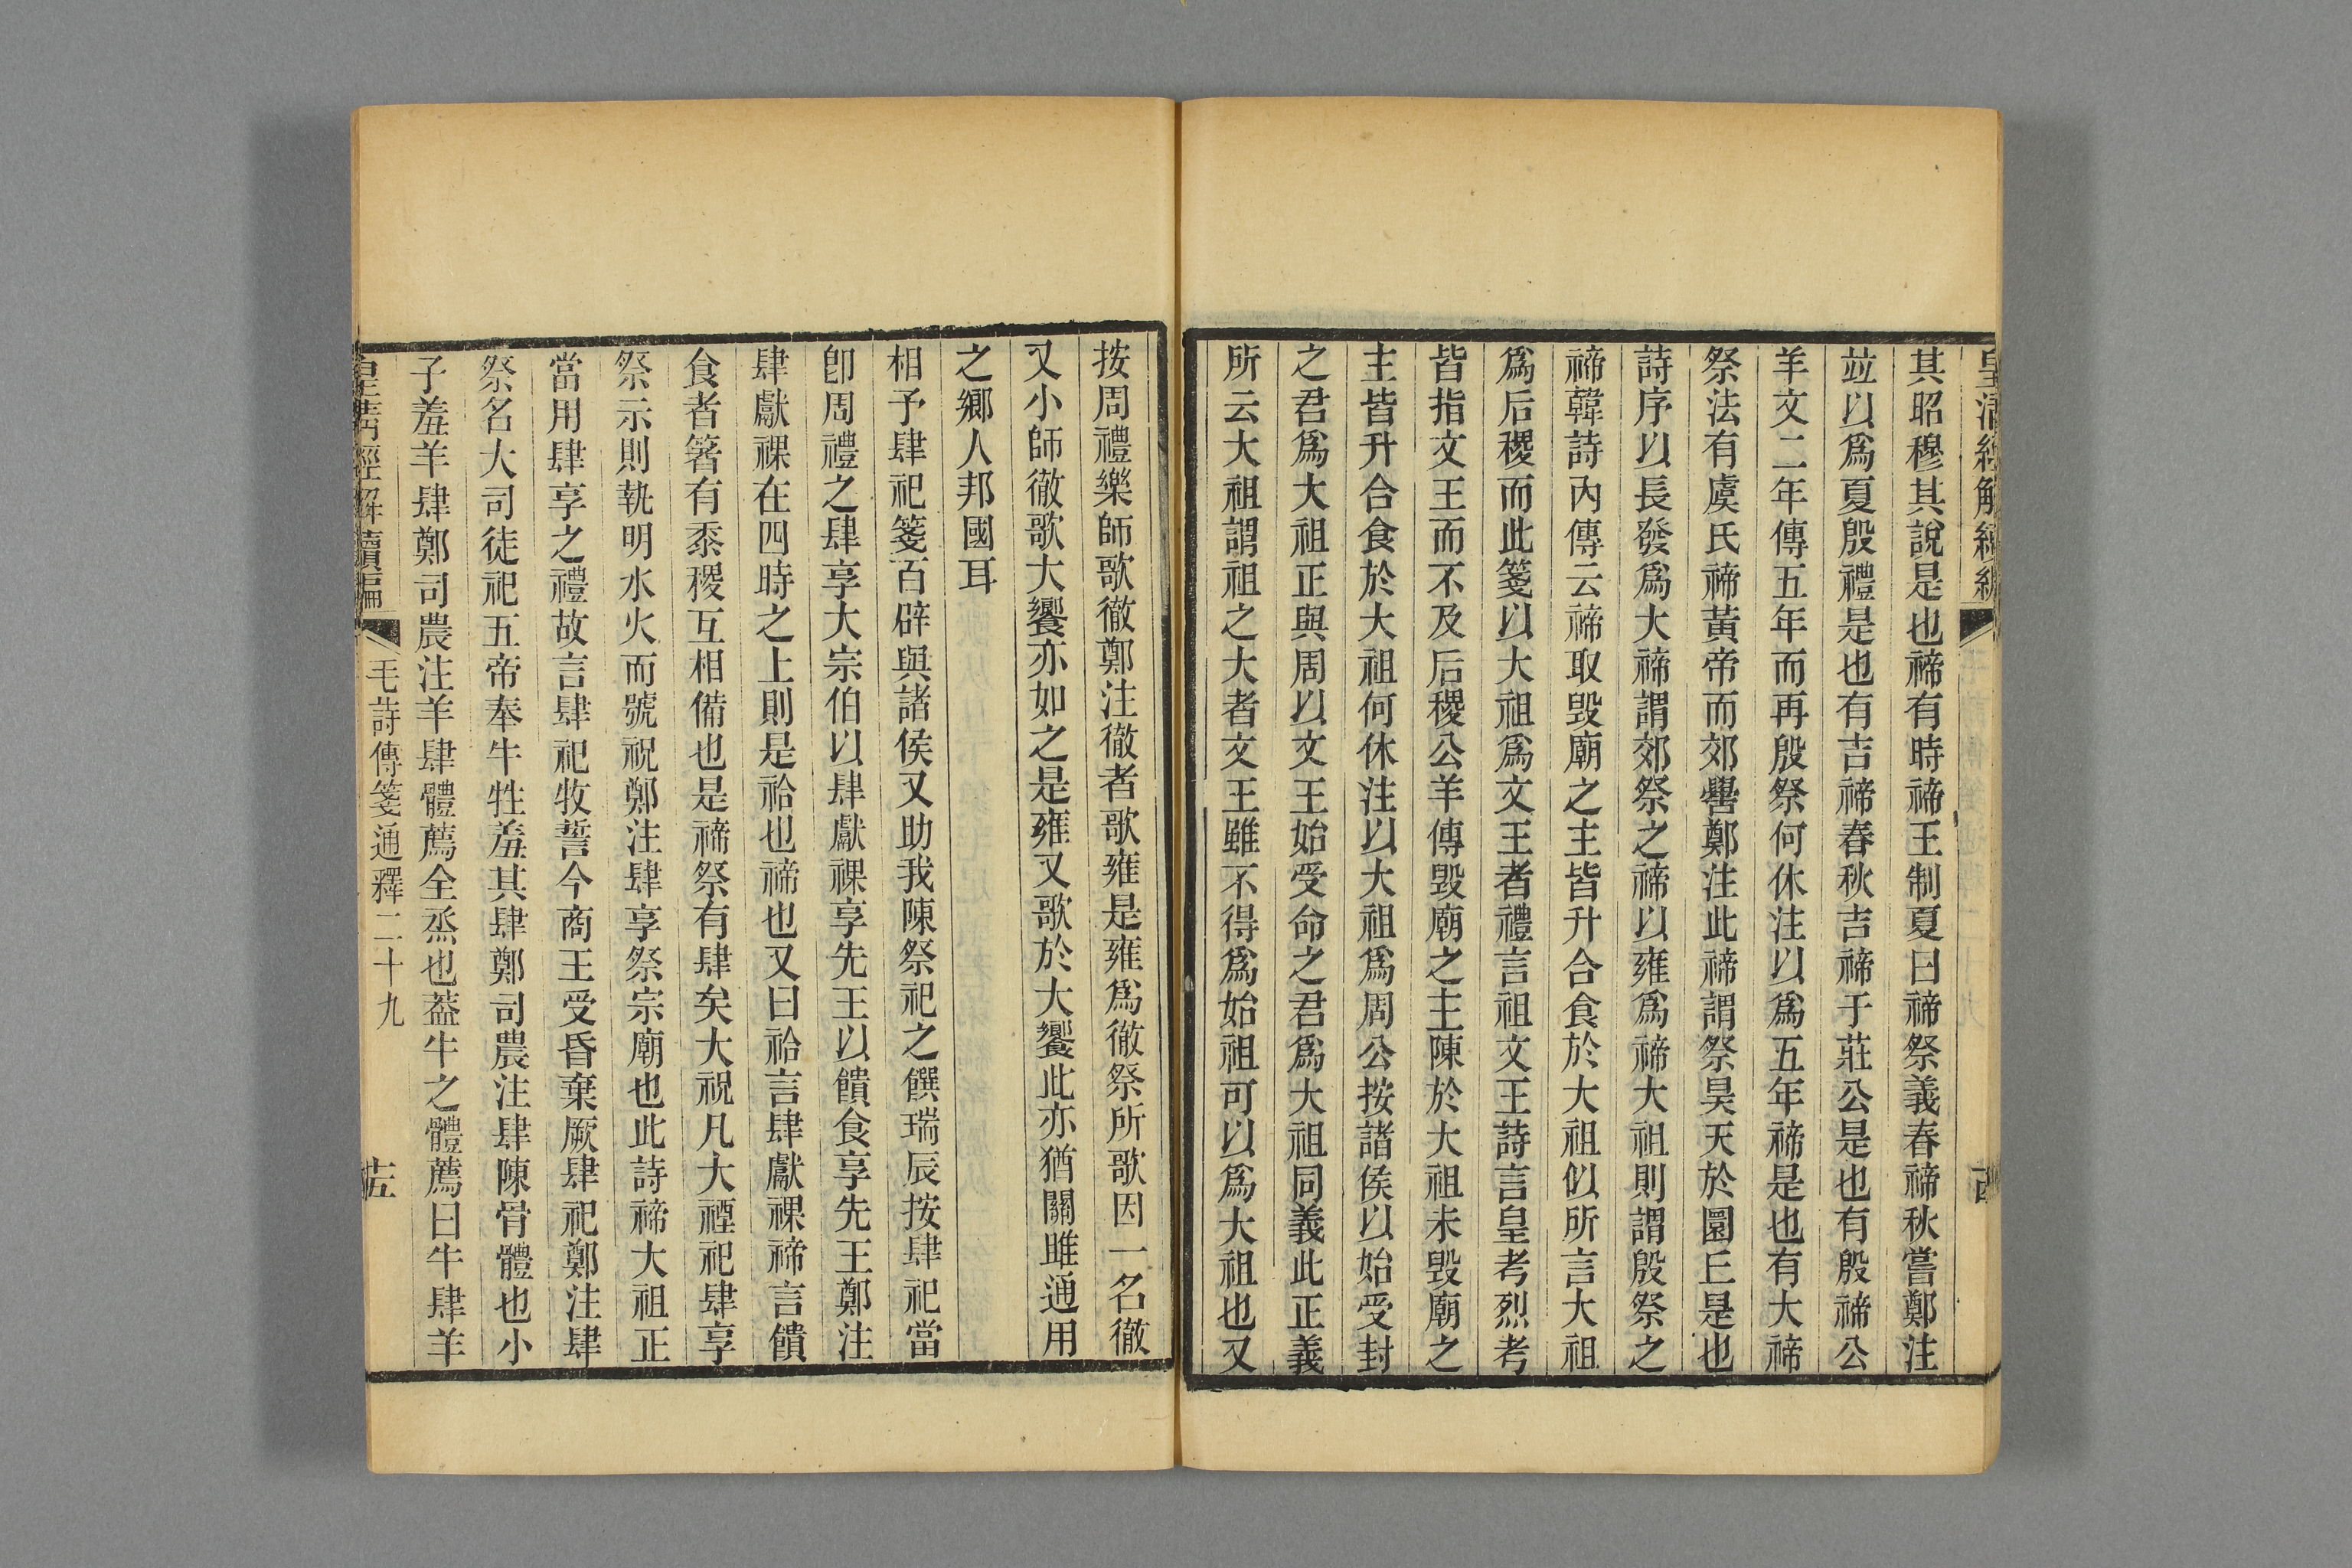 皇清經解續編
其昭穆其說是也禘有時禘王制夏曰禘祭義春禘秋嘗鄭注
竝以爲夏殷禮是也有吉禘春秋吉禘于莊公是也有殷禘公
羊文二年傳五年而再殷祭何休注以爲五年禘是也有大禘
祭法有虞氏禘黃帝而郊嚳鄭注此禘謂祭昊天於圜丘是也
詩序以長發爲大禘謂郊祭之禘以雍爲禘大祖則謂殷祭之
禘韓詩內傳云禘取毀廟之主皆升合食於大祖似所言大祖
爲后稷而此箋以大祖爲文王者禮言祖文王詩言皇考烈考
皆指文王而不及后稷公羊傳毀廟之主陳於大祖未毀廟之
主皆升合食於大祖何休注以大祖爲周公按諸侯以始受封
之君爲大祖正與周以文王始受命之君爲大祖同義此正義
所云大祖謂祖之大者文王雖不得爲始祖可以爲大祖也又
按周禮樂師歌徹鄭注徹者歌雍是雍爲徹祭所歌因一名徹
又小師徹歌大饗亦如之是雍又歌於大饗此亦猶關雎通用
之鄉人邦國耳
相予肆祀箋百辟與諸侯又助我陳祭祀之饌瑞辰按肆祀當
卽周禮之肆享大宗伯以肆獻祼享先王以饋食享先王鄭注
肆獻祼在四時之上則是祫也禘也又曰祫言肆獻祼禘言饋
食者箸有黍稷互相備也是禘祭有肆矣大祝凡大禋祀肆享
祭示則執明水火而號祝鄭注肆享祭宗廟也此詩禘大祖正
當用肆享之禮故言肆祀牧誓今商王受昏棄厥肆祀鄭注肆
祭名大司徒祀五帝奉牛牲羞其肆鄭司農注肆陳骨體也小
子羞羊肆鄭司農注羊肆體薦全烝也葢牛之體薦曰牛肆羊
皇清經解續編 毛詩傳箋通釋二十九 十五